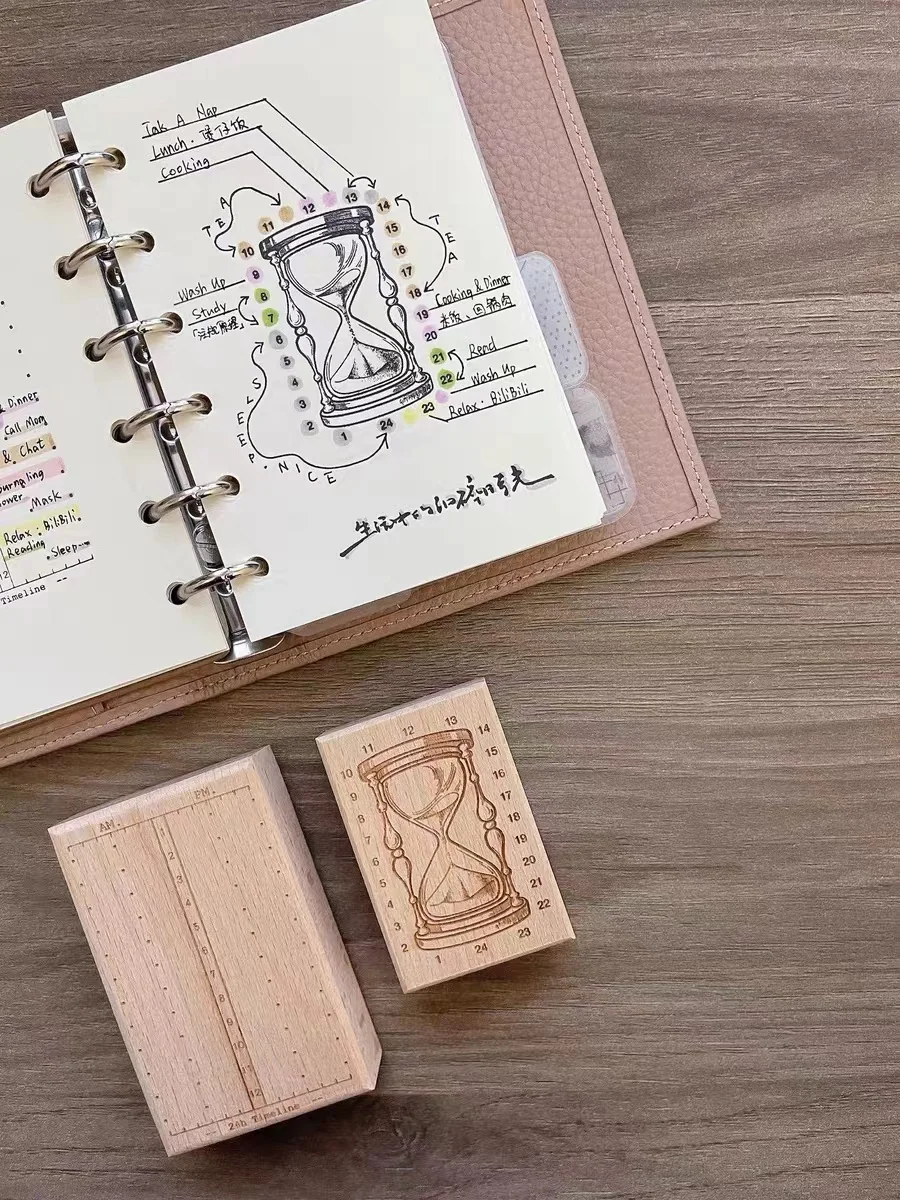 Tak A Nap
Lunch · 煲仔饭
Cooking
TEA
11
12
13
14
10
15
9
16
8
17
7
18
6
19
5
20
4
21
3
22
2
23
1
24
TEA
Wash Up
Study
Cooking & Dinner
米饭、回锅肉
Read
Wash Up
Relax · BiliBili
SLEEP · NICE
& Dinner
Call Mom
& Chat
Mask
Relax : BiliBili
Reading
Sleep
12
Timeline --
AM.
PM.
1
2
3
4
5
6
7
8
9
10
11
12
-- 24h Timeline --
11
12
13
14
10
15
9
16
8
17
7
18
6
19
5
20
4
21
3
22
2
23
1
24